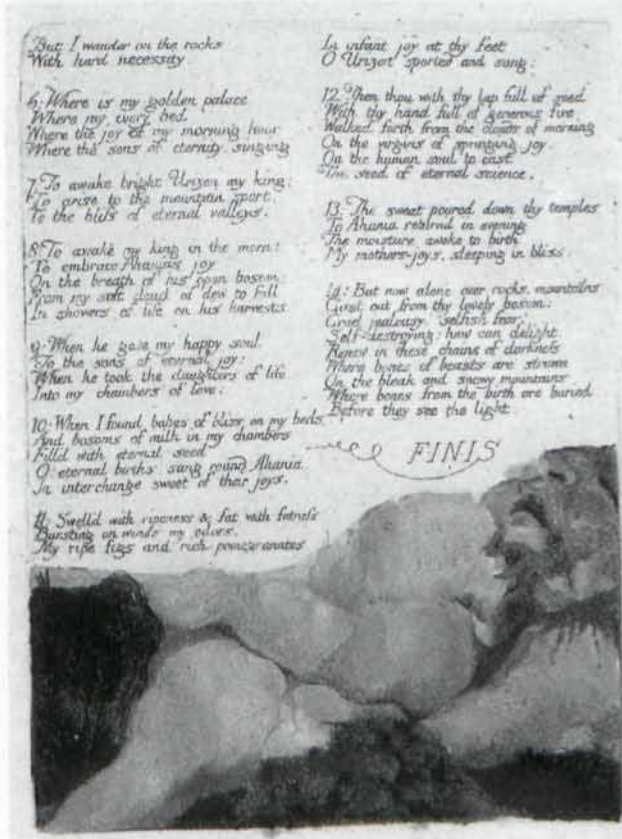 But I wander on the rocks
With hard necessity
6: Where is my golden palace
Where my ivory bed
Where the joy of my morning hour
Where the sons of eternity, singing
7: To awake bright Urizen my king:
To arise to the mountain sport,
To the bliss of eternal valleys:
8: To awake my king in the morn:
To embrace Ahanias joy
On the breath of his open bosom:
From my soft cloud of dew to fall
In showers of life on his harvests
9: When he gave my happy soul
To the sons of eternal joy:
When he took the daughters of life.
Into my chambers of love:
10: When I found babes of bliss on my beds.
And bosoms of milk in my chambers
Fill'd with eternal seed
O! eternal births sung round Ahania
In interchange sweet of their joys.
11: Swell'd with ripeness & fat with fatness
Bursting on winds my odors,
My ripe figs and rich pomegranates
In infant joy at thy feet
O Urizen, sported and sang;
12: Then thou with thy lap full of seed
With thy hand full of generous fire
Walked forth from the clouds of morning
On the virgins of springing joy,
On the human soul to cast
The seed of eternal science.
13: The sweat poured down thy temples
To Ahania return'd in evening
The moisture awoke to birth
My mothers-joys, sleeping in bliss.
14: But now alone over rocks, mountains
Cast out from thy lovely bosom:
Cruel jealousy! selfish fear!
Self-destroying: how can delight,
Renew in these chains of darkness
Where bones of beasts are strown
On the bleak and snowy mountains
Where bones from the birth are buried
Before they see the light.
FINIS